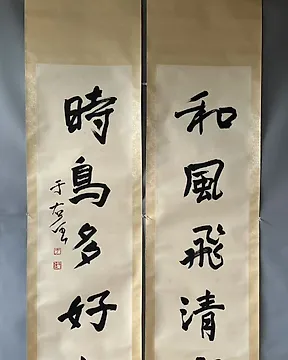 和風飛清
時鳥多好
于右任